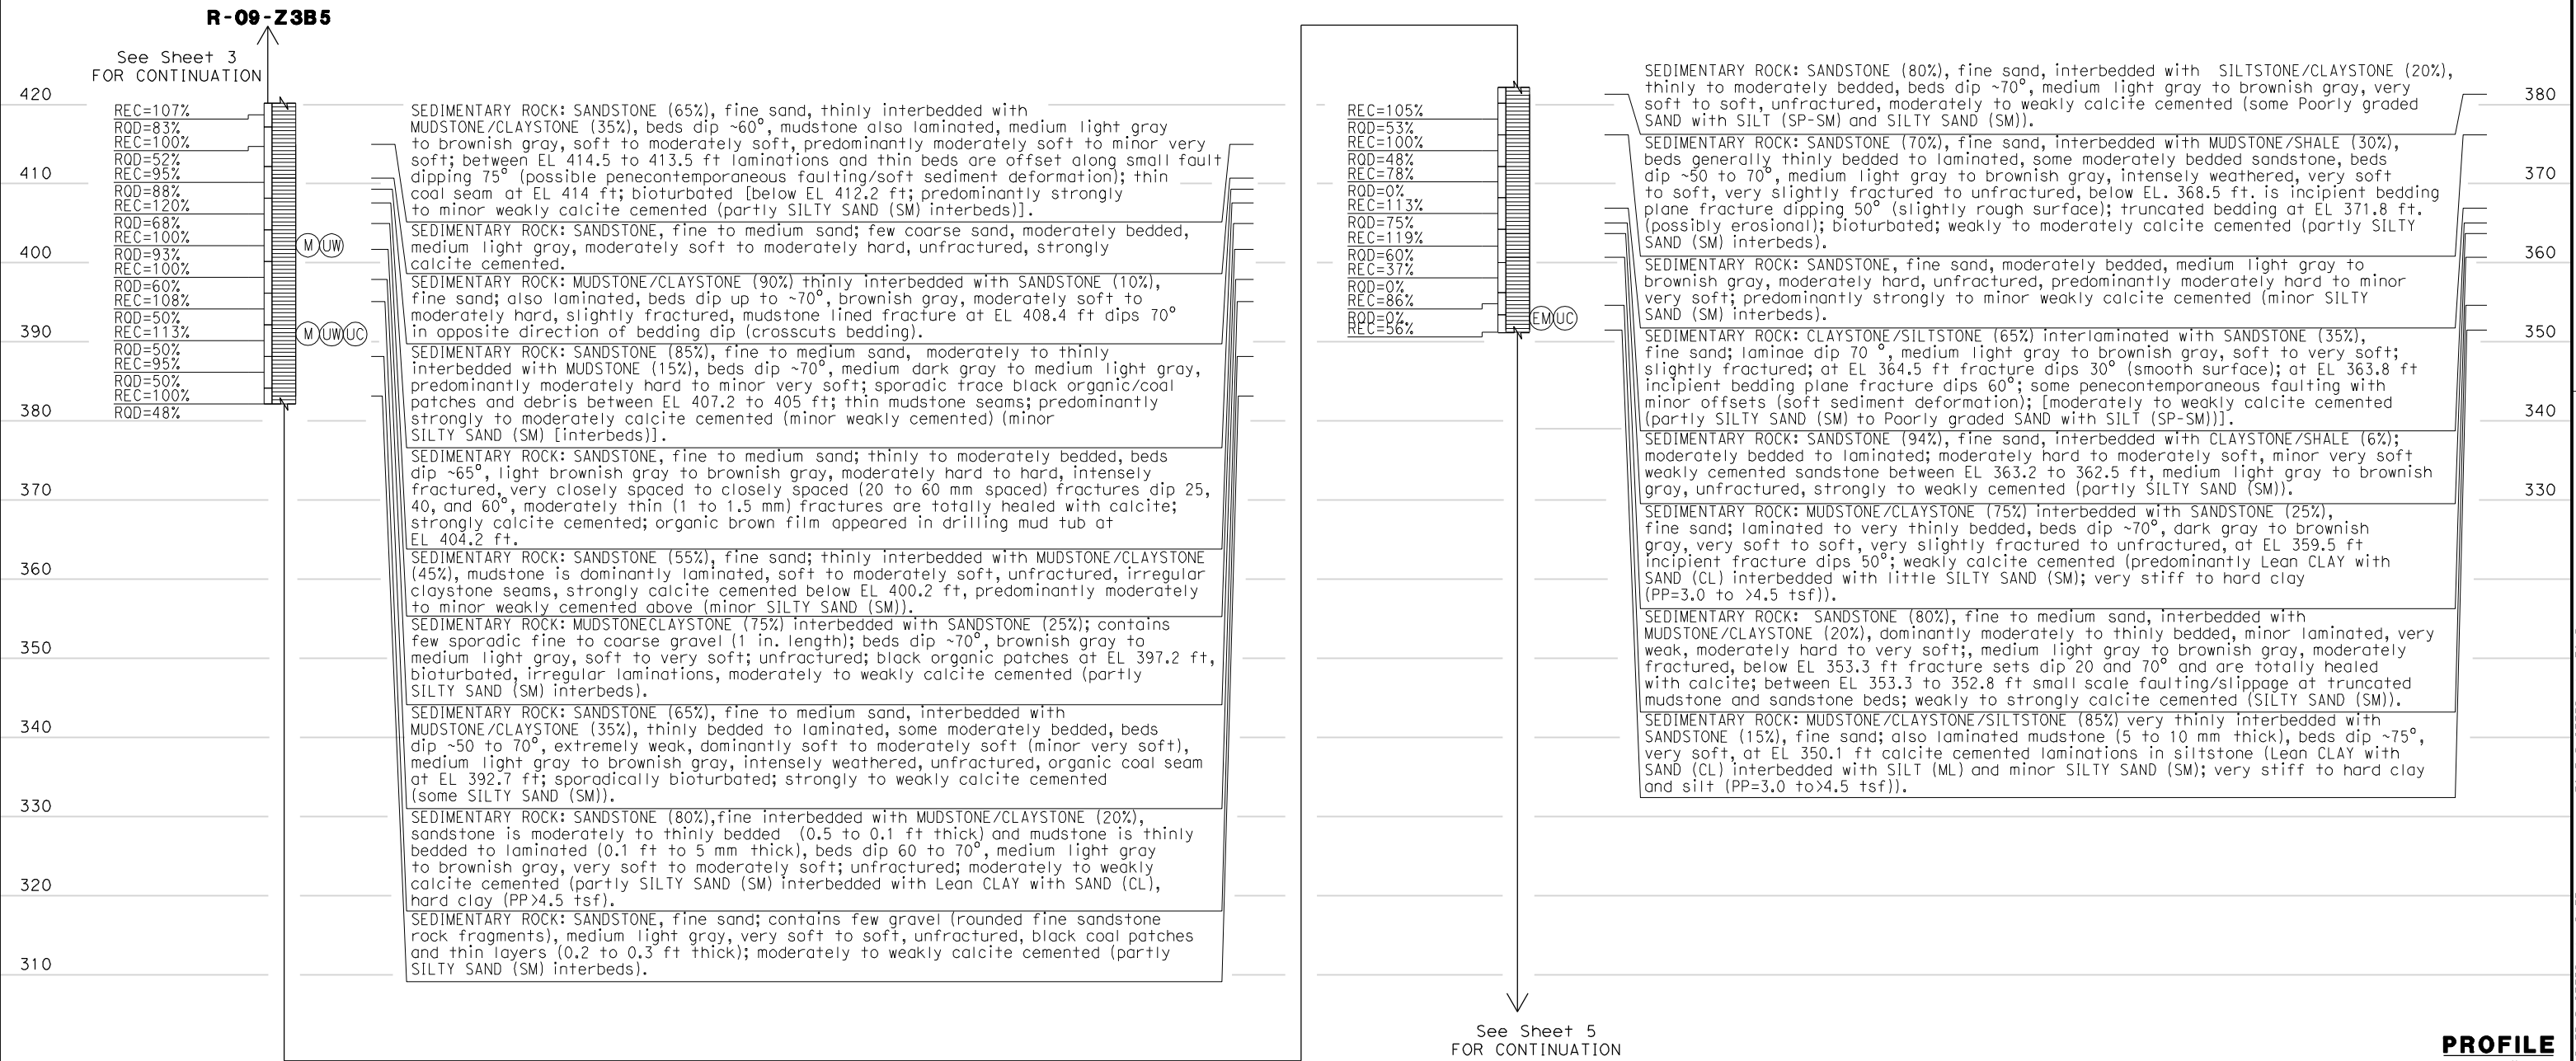 R-09-Z3B5
See Sheet 3
FOR CONTINUATION
420
410
400
390
380
370
360
350
340
330
320
310
REC=107%
RQD=83%
REC=100%
RQD=52%
REC=95%
RQD=88%
REC=120%
RQD=68%
REC=100%
RQD=93%
REC=100%
RQD=60%
REC=108%
RQD=50%
REC=113%
RQD=50%
REC=95%
RQD=50%
REC=100%
RQD=48%
M UW
M UW UC
SEDIMENTARY ROCK: SANDSTONE (65%), fine sand, thinly interbedded with
MUDSTONE/CLAYSTONE (35%), beds dip ~60°, mudstone also laminated, medium light gray
to brownish gray, soft to moderately soft, predominantly moderately soft to minor very
soft; between EL 414.5 to 413.5 ft laminations and thin beds are offset along small fault
dipping 75° (possible penecontemporaneous faulting/soft sediment deformation); thin
coal seam at EL 414 ft; bioturbated [below EL 412.2 ft; predominantly strongly
to minor weakly calcite cemented (partly SILTY SAND (SM) interbeds)].
SEDIMENTARY ROCK: SANDSTONE, fine to medium sand; few coarse sand, moderately bedded,
medium light gray, moderately soft to moderately hard, unfractured, strongly
calcite cemented.
SEDIMENTARY ROCK: MUDSTONE/CLAYSTONE (90%) thinly interbedded with SANDSTONE (10%),
fine sand; also laminated, beds dip up to ~70°, brownish gray, moderately soft to
moderately hard, slightly fractured, mudstone lined fracture at EL 408.4 ft dips 70°
in opposite direction of bedding dip (crosscuts bedding).
SEDIMENTARY ROCK: SANDSTONE (85%), fine to medium sand, moderately to thinly
interbedded with MUDSTONE (15%), beds dip ~70°, medium dark gray to medium light gray,
predominantly moderately hard to minor very soft; sporadic trace black organic/coal
patches and debris between EL 407.2 to 405 ft; thin mudstone seams; predominantly
strongly to moderately calcite cemented (minor weakly cemented) (minor
SILTY SAND (SM) [interbeds)].
SEDIMENTARY ROCK: SANDSTONE, fine to medium sand; thinly to moderately bedded, beds
dip ~65°, light brownish gray to brownish gray, moderately hard to hard, intensely
fractured, very closely spaced to closely spaced (20 to 60 mm spaced) fractures dip 25,
40, and 60°, moderately thin (1 to 1.5 mm) fractures are totally healed with calcite;
strongly calcite cemented; organic brown film appeared in drilling mud tub at
EL 404.2 ft.
SEDIMENTARY ROCK: SANDSTONE (55%), fine sand; thinly interbedded with MUDSTONE/CLAYSTONE
(45%), mudstone is dominantly laminated, soft to moderately soft, unfractured, irregular
claystone seams, strongly calcite cemented below EL 400.2 ft, predominantly moderately
to minor weakly cemented above (minor SILTY SAND (SM)).
SEDIMENTARY ROCK: MUDSTONECLAYSTONE (75%) interbedded with SANDSTONE (25%); contains
few sporadic fine to coarse gravel (1 in. length); beds dip ~70°, brownish gray to
medium light gray, soft to very soft; unfractured; black organic patches at EL 397.2 ft,
bioturbated, irregular laminations, moderately to weakly calcite cemented (partly
SILTY SAND (SM) interbeds).
SEDIMENTARY ROCK: SANDSTONE (65%), fine to medium sand, interbedded with
MUDSTONE/CLAYSTONE (35%), thinly bedded to laminated, some moderately bedded, beds
dip ~50 to 70°, extremely weak, dominantly soft to moderately soft (minor very soft),
medium light gray to brownish gray, intensely weathered, unfractured, organic coal seam
at EL 392.7 ft; sporadically bioturbated; strongly to weakly calcite cemented
(some SILTY SAND (SM)).
SEDIMENTARY ROCK: SANDSTONE (80%),fine interbedded with MUDSTONE/CLAYSTONE (20%),
sandstone is moderately to thinly bedded (0.5 to 0.1 ft thick) and mudstone is thinly
bedded to laminated (0.1 ft to 5 mm thick), beds dip 60 to 70°, medium light gray
to brownish gray, very soft to moderately soft; unfractured; moderately to weakly
calcite cemented (partly SILTY SAND (SM) interbedded with Lean CLAY with SAND (CL),
hard clay (PP>4.5 tsf).
SEDIMENTARY ROCK: SANDSTONE, fine sand; contains few gravel (rounded fine sandstone
rock fragments), medium light gray, very soft to soft, unfractured, black coal patches
and thin layers (0.2 to 0.3 ft thick); moderately to weakly calcite cemented (partly
SILTY SAND (SM) interbeds).
REC=105%
RQD=53%
REC=100%
RQD=48%
REC=78%
RQD=0%
REC=113%
RQD=75%
REC=119%
RQD=60%
REC=37%
RQD=0%
REC=86%
RQD=0%
REC=56%
EM UC
SEDIMENTARY ROCK: SANDSTONE (80%), fine sand, interbedded with SILTSTONE/CLAYSTONE (20%),
thinly to moderately bedded, beds dip ~70°, medium light gray to brownish gray, very
soft to soft, unfractured, moderately to weakly calcite cemented (some Poorly graded
SAND with SILT (SP-SM) and SILTY SAND (SM)).
SEDIMENTARY ROCK: SANDSTONE (70%), fine sand, interbedded with MUDSTONE/SHALE (30%),
beds generally thinly bedded to laminated, some moderately bedded sandstone, beds
dip ~50 to 70°, medium light gray to brownish gray, intensely weathered, very soft
to soft, very slightly fractured to unfractured, below EL. 368.5 ft. is incipient bedding
plane fracture dipping 50° (slightly rough surface); truncated bedding at EL 371.8 ft.
(possibly erosional); bioturbated; weakly to moderately calcite cemented (partly SILTY
SAND (SM) interbeds).
SEDIMENTARY ROCK: SANDSTONE, fine sand, moderately bedded, medium light gray to
brownish gray, moderately hard, unfractured, predominantly moderately hard to minor
very soft; predominantly strongly to minor weakly calcite cemented (minor SILTY
SAND (SM) interbeds).
SEDIMENTARY ROCK: CLAYSTONE/SILTSTONE (65%) interlaminated with SANDSTONE (35%),
fine sand; laminae dip 70 °, medium light gray to brownish gray, soft to very soft;
slightly fractured; at EL 364.5 ft fracture dips 30° (smooth surface); at EL 363.8 ft
incipient bedding plane fracture dips 60°; some penecontemporaneous faulting with
minor offsets (soft sediment deformation); [moderately to weakly calcite cemented
(partly SILTY SAND (SM) to Poorly graded SAND with SILT (SP-SM))].
SEDIMENTARY ROCK: SANDSTONE (94%), fine sand, interbedded with CLAYSTONE/SHALE (6%);
moderately bedded to laminated; moderately hard to moderately soft, minor very soft
weakly cemented sandstone between EL 363.2 to 362.5 ft, medium light gray to brownish
gray, unfractured, strongly to weakly cemented (partly SILTY SAND (SM)).
SEDIMENTARY ROCK: MUDSTONE/CLAYSTONE (75%) interbedded with SANDSTONE (25%),
fine sand; laminated to very thinly bedded, beds dip ~70°, dark gray to brownish
gray, very soft to soft, very slightly fractured to unfractured, at EL 359.5 ft
incipient fracture dips 50°; weakly calcite cemented (predominantly Lean CLAY with
SAND (CL) interbedded with little SILTY SAND (SM); very stiff to hard clay
(PP=3.0 to >4.5 tsf)).
SEDIMENTARY ROCK: SANDSTONE (80%), fine to medium sand, interbedded with
MUDSTONE/CLAYSTONE (20%), dominantly moderately to thinly bedded, minor laminated, very
weak, moderately hard to very soft;, medium light gray to brownish gray, moderately
fractured, below EL 353.3 ft fracture sets dip 20 and 70° and are totally healed
with calcite; between EL 353.3 to 352.8 ft small scale faulting/slippage at truncated
mudstone and sandstone beds; weakly to strongly calcite cemented (SILTY SAND (SM)).
SEDIMENTARY ROCK: MUDSTONE/CLAYSTONE/SILTSTONE (85%) very thinly interbedded with
SANDSTONE (15%), fine sand; also laminated mudstone (5 to 10 mm thick), beds dip ~75°,
very soft, at EL 350.1 ft calcite cemented laminations in siltstone (Lean CLAY with
SAND (CL) interbedded with SILT (ML) and minor SILTY SAND (SM); very stiff to hard clay
and silt (PP=3.0 to>4.5 tsf)).
380
370
360
350
340
330
See Sheet 5
FOR CONTINUATION
PROFILE